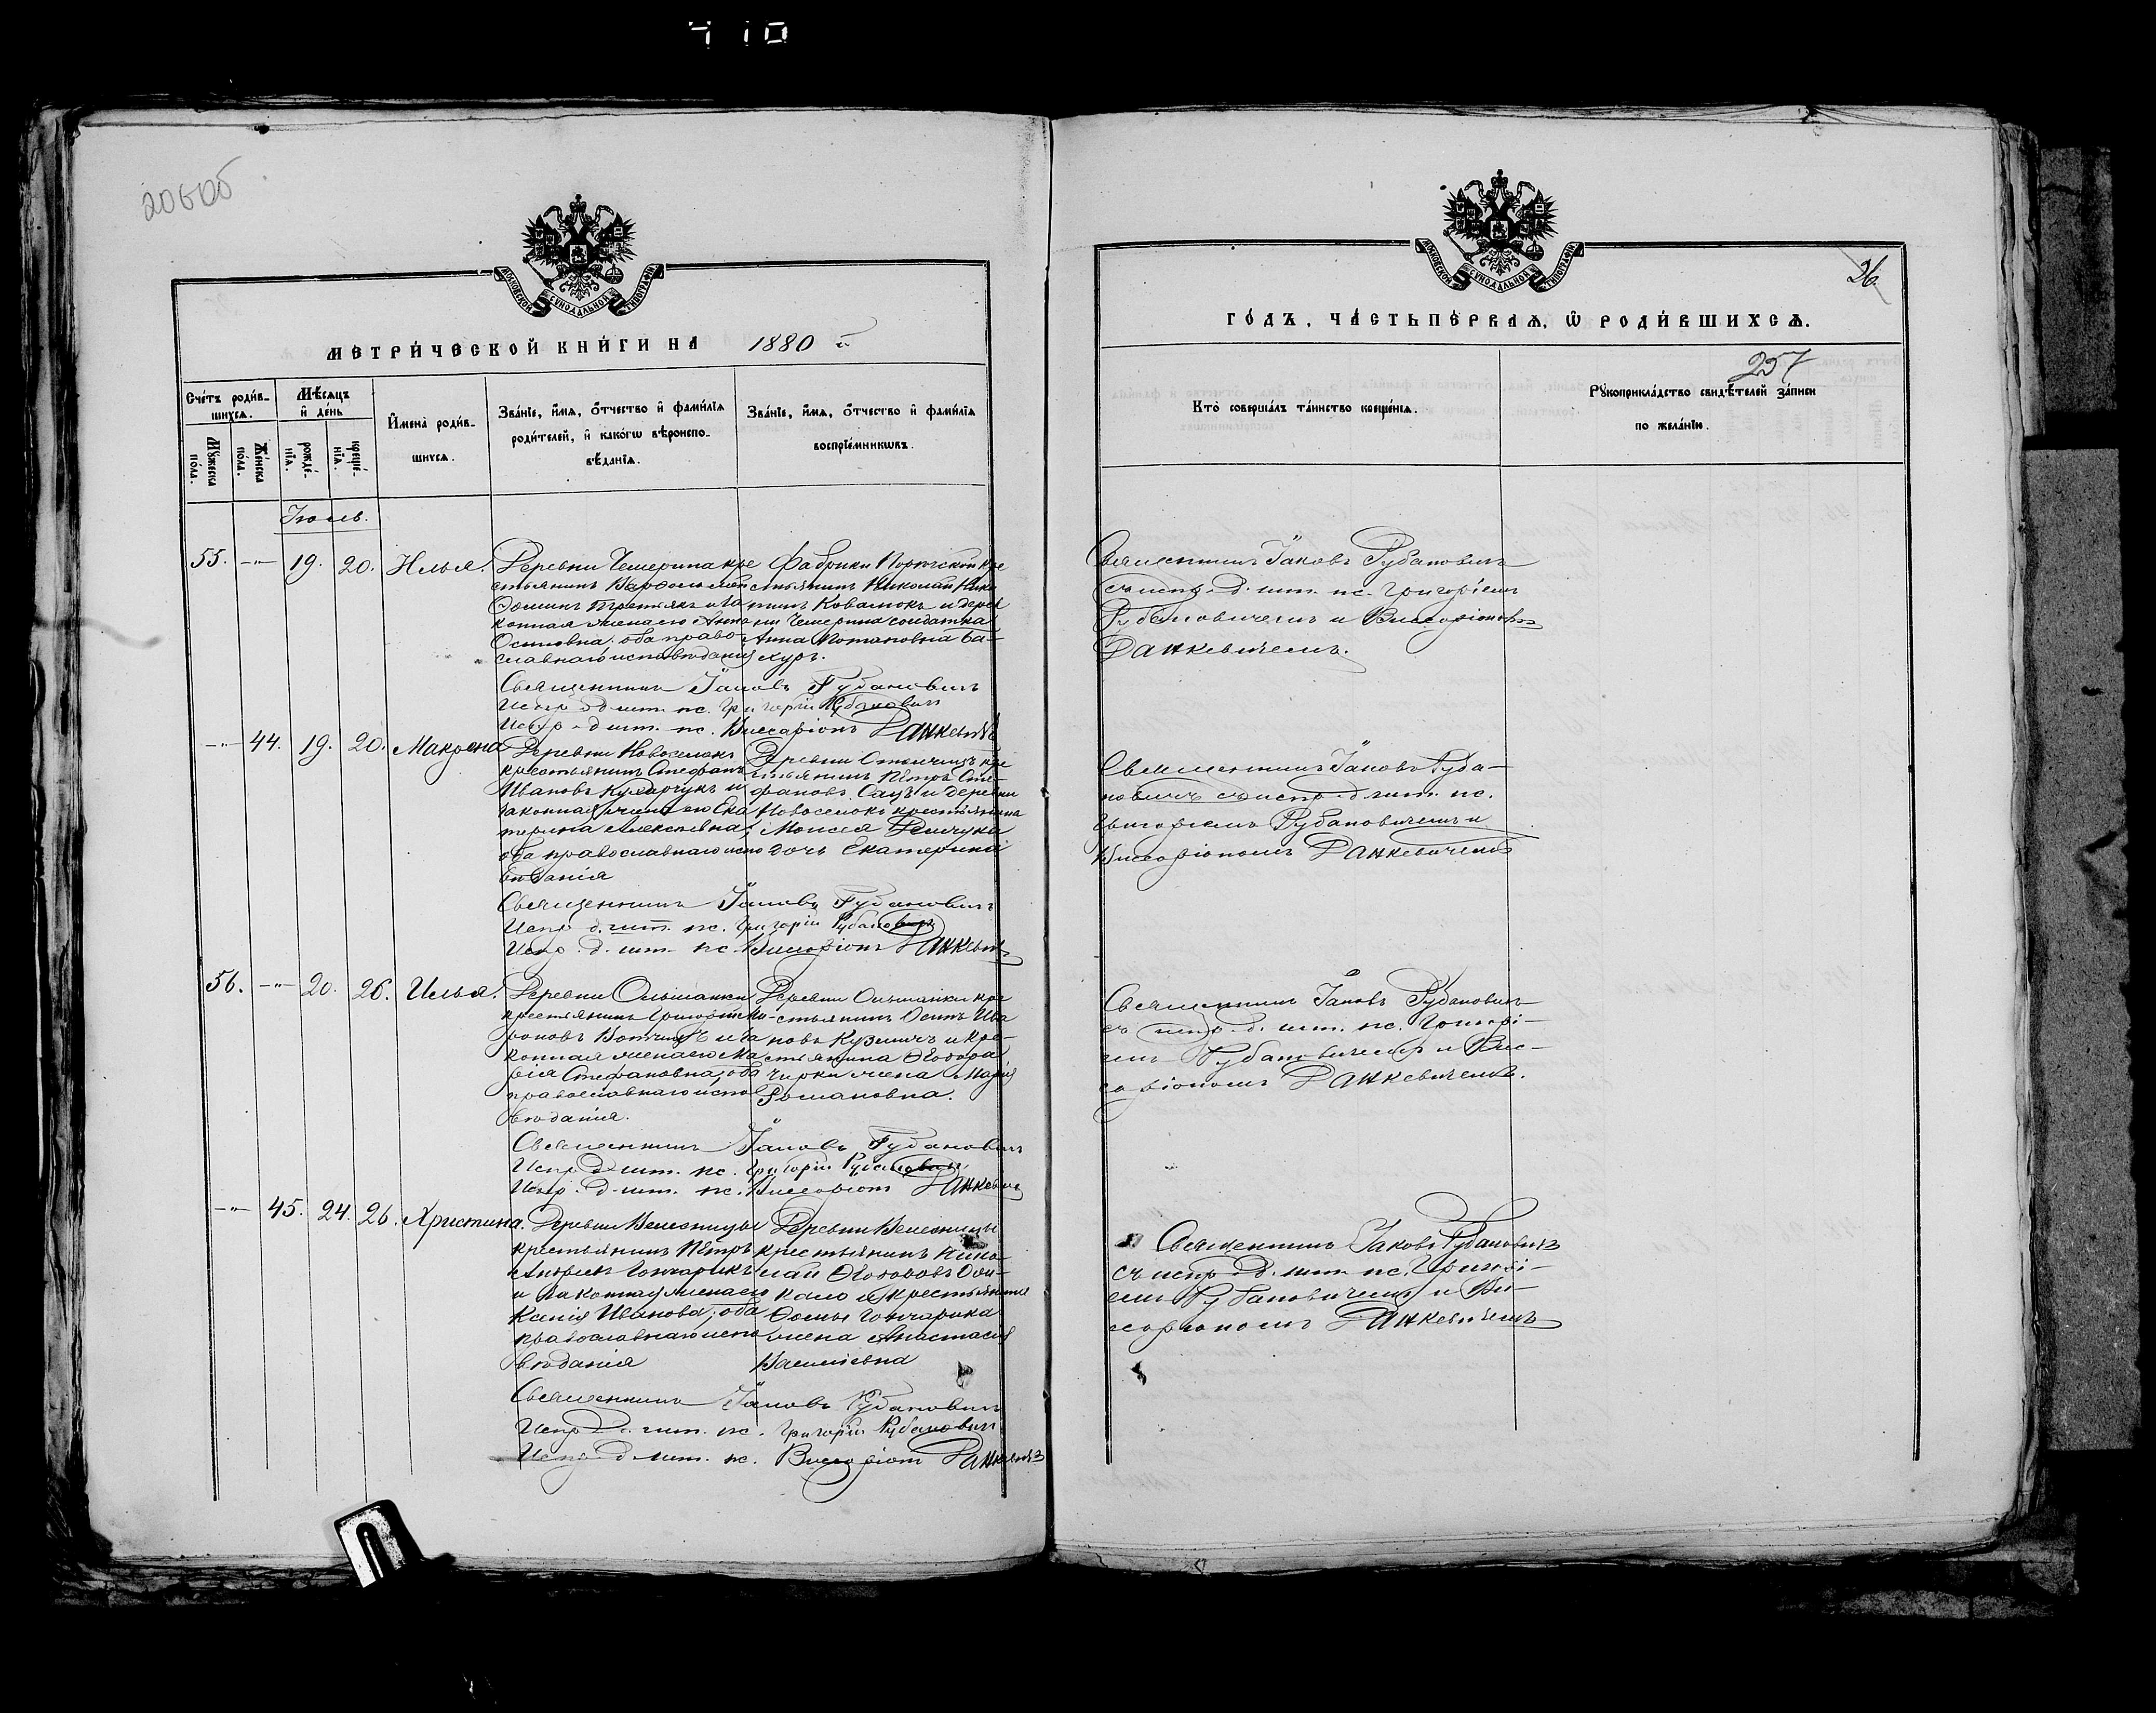 410
20605
МОСКОВСКОЙ СѴНОДАЛЬНОЙ ТИПОГРАФІИ
МЕТРИ́ЧЕСКОЙ КНИ́ГИ НА 1880 й
Сче́тъ роди́в-
шихсѧ.
Мѣ́сѧцъ
и҆ де́нь
Мꙋ́жеска
по́ла.
Же́нска
по́ла.
рожде́-
нїѧ.
креще́-
нїѧ.
И҆мена̀ роди́в-
шихсѧ.
Зва́нїе, и҆́мѧ, ѻ҆́тчество и҆ фами́лїѧ
роди́телей, и҆ како́гѡ вѣроиспо-
вѣ́данїѧ.
Зва́нїе, и҆́мѧ, ѻ҆́тчество и҆ фами́лїѧ
воспрїе́мникѡвъ.
Іюль.
55. -"- 19. 20. Илья.
Деревни Чемерина кре
стьянинъ Варфоломей
Ѳоминъ Третьякъ и за
конная жена его Анна
Осиповна; оба право
славнаго исповѣданія
Фабрики Порѣчской кре
стьянинъ Николай Ники
тинъ Ковалюкъ и дерев
ни Чемерина солдатка
Анна Потаповна Ба-
хуръ.
Священникъ Іаковъ Рубановичъ
Испр. д. шт. пс. Григорій Рубановичъ
Испр. д. шт. пс. Виссаріонъ Данкевичъ
-"- 44. 19. 20. Макрена
Деревни Новоселокъ
крестьянинъ Стефанъ
Ивановъ Кухарчукъ и
законная жена его Ека
терина Алексѣевна;
оба православнаго испо
вѣданія
Деревни кре
стьянинъ Петръ Сте-
фановъ и деревни
Новоселокъ крестьянина
Моисея
дочь Екатерина
Священникъ Іаковъ Рубановичъ
Испр. д. шт. пс. Григорій Рубановичъ
Испр. д. шт. пс. Виссаріонъ Данкевичъ
56. -"- 20. 26. Илья.
Деревни Ольшанки
крестьянинъ Григорій Ми-
роновъ и за
конная жена его Ма
рія Стефановна; оба
православнаго испо
вѣданія.
Деревни Ольшанки кре
стьянинъ Осипъ Ива
новъ Кузмичъ и кре-
стьянина Ѳеодора
Чирки жена Марія
Романовна.
Священникъ Іаковъ Рубановичъ
Испр. д. шт. пс. Григорій Рубановичъ
Испр. д. шт. пс. Виссаріонъ Данкевичъ
-"- 45. 24. 26. Христина.
Деревни Велесницы
крестьянинъ Петръ
Андреевъ Гончарикъ
и законная жена его
Ксенія Иванова; оба
православнаго испо
вѣданія
Деревни Велесницы
крестьянинъ Нико-
лай Ѳеодоровъ
и крестьянина
Ѳомы Гончарика
жена Анастасія
Васильевна
Священникъ Іаковъ Рубановичъ
Испр. д. шт. пс. Григорій Рубановичъ
Испр. д. шт. пс. Виссаріонъ Данкевичъ
26
МОСКОВСКОЙ СѴНОДАЛЬНОЙ ТИПОГРАФІИ
ГО́ДЪ, ЧА́СТЬ ПЕ́РВАѦ, Ѽ РОДИ́ВШИХСѦ.
257
Кто̀ соверша́лъ та́инство креще́нїѧ.
Рꙋкоприкла́дство свидѣ́телей за́писи
по жела́нїю.
Священникъ Іаковъ Рубановичъ
съ испр. д. шт. пс. Григоріемъ
Рубановичемъ и Виссаріономъ
Данкевичемъ.
Священникъ Іаковъ Руба-
новичъ съ испр. д. шт. пс.
Григоріемъ Рубановичемъ и
Виссаріономъ Данкевичемъ
Священникъ Іаковъ Рубановичъ
съ испр. д. шт. пс. Григорі-
емъ Рубановичемъ и Вис-
саріономъ Данкевичемъ.
Священникъ Іаковъ Рубановичъ
съ испр. д. шт. пс. Григорі-
емъ Рубановичемъ и Ви-
ссаріономъ Данкевичемъ